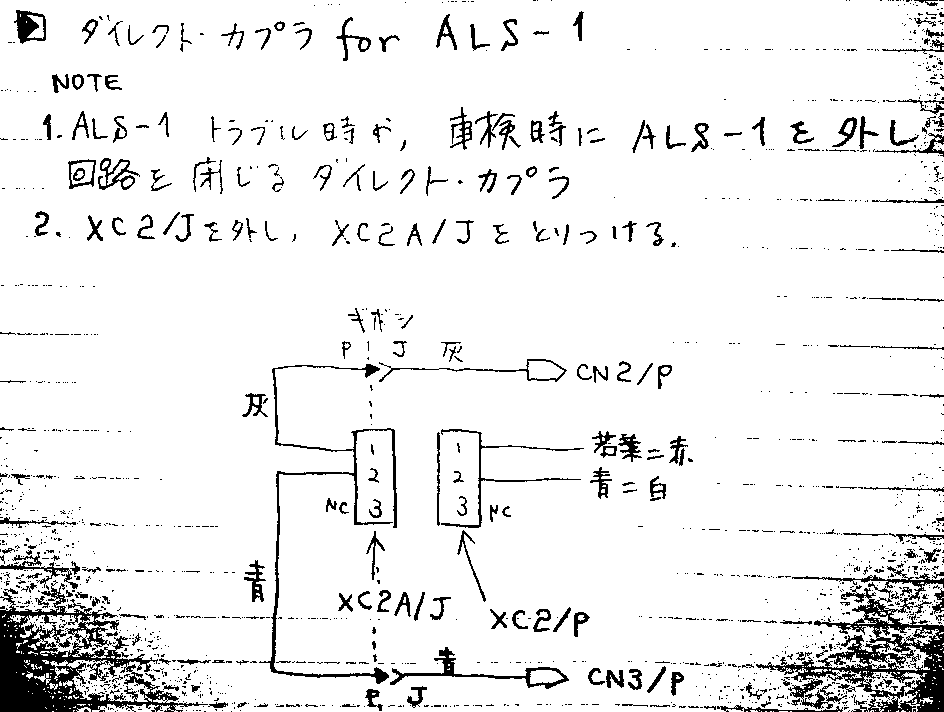 ダイレクト・カプラ for ALS-1
NOTE
1. ALS-1 トラブル時や, 車検時に ALS-1を外し,
回路を閉じるダイレクト・カプラ
2. XC2/Jを外し, XC2A/Jをとりつける.
ギボシ
P J 灰
CN2/P
灰
1 1 若葉=赤
2 2 青=白
NC 3 3 NC
青
XC2A/J
XC2/P
青
CN3/P
P J